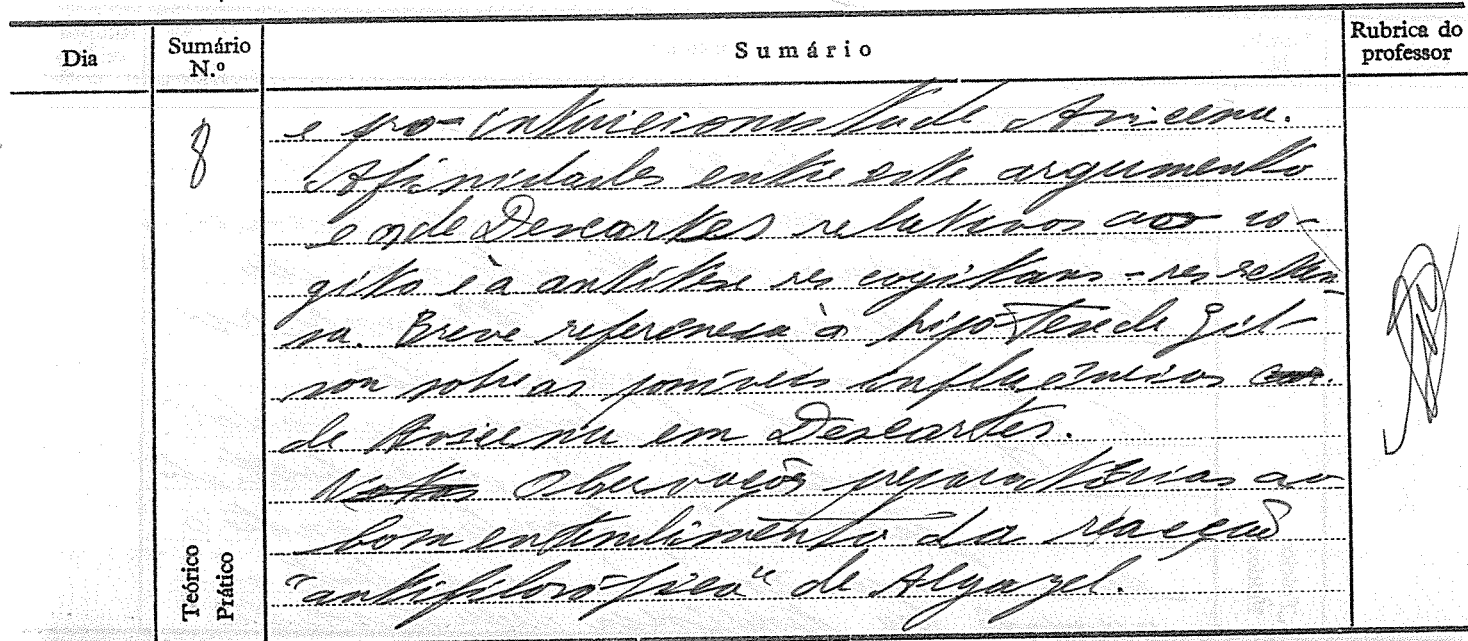 Dia
Sumário N.º
Sumário
Rubrica do professor
8
e pro-intuicionista de Avicena.
Afinidades entre este argumento
e o de Descartes relativos ao co-
gito e à antítese res cogitans - res exten
sa. Breve referencia à hipótese de Gil-
son sobre as possíveis influências
de Avicena em Descartes.
Notas Observações preparatórias ao
bom entendimento da reacção
"antifilosófica" de Algazel.
Teórico
Prático